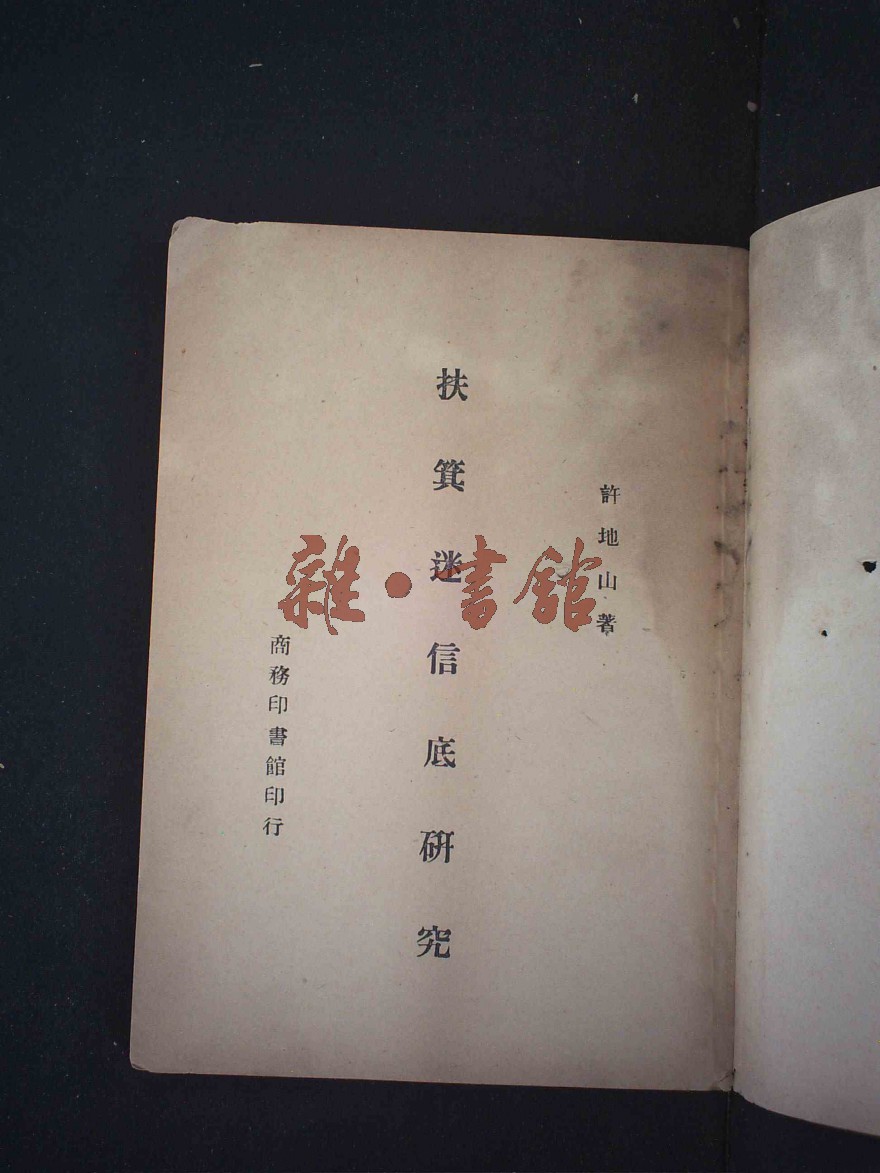 許地山著
扶箕迷信底硏究
商務印書館印行
雜·書館